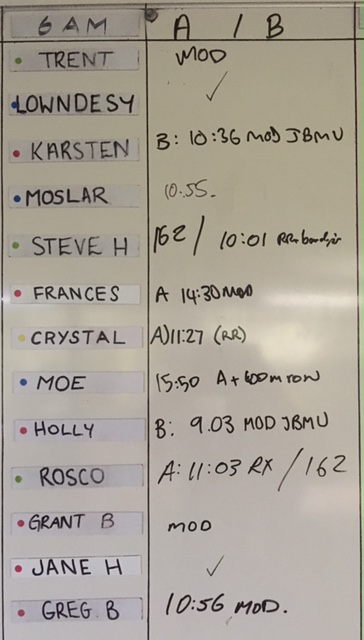 6 AM A / B
TRENT MOD
LOWNDESY ✓
KARSTEN B: 10:36 MOD JBMU
MOSLAR 10.55.
STEVE H 162 / 10:01 RR+
FRANCES A 14:30 MOD
CRYSTAL A) 11:27 (RR)
MOE 15:50 A + 600m row
HOLLY B: 9.03 MOD JBMU
ROSCO A: 11:03 RX / 162
GRANT B MOD
JANE H ✓
GREG. B 10:56 MOD.